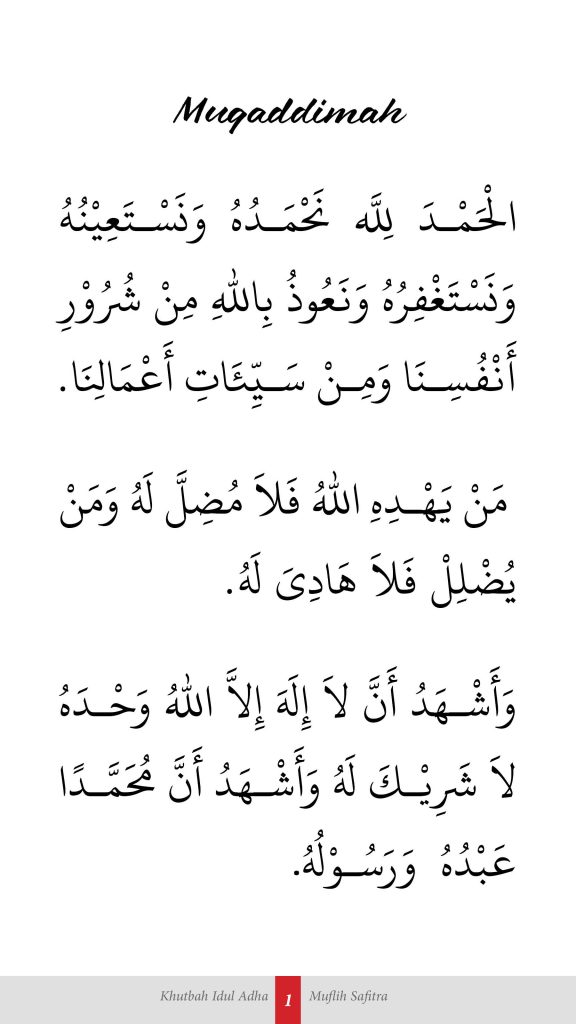 Muqaddimah
الْحَمْدَ لِلَّه نَحْمَدُهُ وَنَسْتَعِيْنُهُ
وَنَسْتَغْفِرُهُ وَنَعُوذُ بِاللهِ مِنْ شُرُوْرِ
أَنْفُسِنَا وَمِنْ سَيِّئَاتِ أَعْمَالِنَا.
مَنْ يَهْدِهِ اللهُ فَلاَ مُضِلَّ لَهُ وَمَنْ
يُضْلِلْ فَلاَ هَادِىَ لَهُ.
وَأَشْهَدُ أَنَّ لاَ إِلَهَ إِلاَّ اللهُ وَحْدَهُ
لاَ شَرِيْكَ لَهُ وَأَشْهَدُ أَنَّ مُحَمَّدًا
عَبْدُهُ وَرَسُوْلُهُ.
Khutbah Idul Adha 1 Muflih Safitra